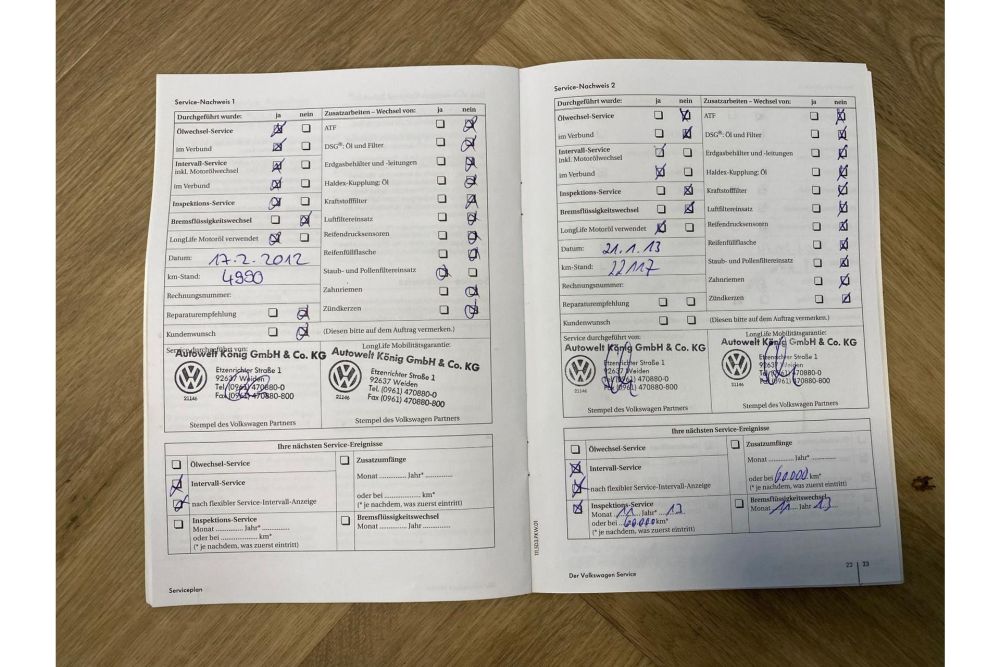 Service-Nachweis 1
Durchgeführt wurde: ja nein
Zusatzarbeiten – Wechsel von: ja nein
Ölwechsel-Service
im Verbund
Intervall-Service
inkl. Motorölwechsel
im Verbund
Inspektions-Service
Bremsflüssigkeitswechsel
LongLife Motoröl verwendet
Datum: 17.2.2012
km-Stand: 4990
Rechnungsnummer:
Reparaturempfehlung
Kundenwunsch
ATF
DSG®: Öl und Filter
Erdgasbehälter und -leitungen
Haldex-Kupplung: Öl
Kraftstofffilter
Luftfiltereinsatz
Reifendrucksensoren
Reifenfüllflasche
Staub- und Pollenfiltereinsatz
Zahnriemen
Zündkerzen
(Diesen bitte auf dem Auftrag vermerken.)
Service durchgeführt von:
Autowelt König GmbH & Co. KG
Etzenrichter Straße 1
92637 Weiden
Tel. (0961) 470880-0
Fax (0961) 470880-800
21146
Stempel des Volkswagen Partners
LongLife Mobilitätsgarantie:
Autowelt König GmbH & Co. KG
Etzenrichter Straße 1
92637 Weiden
Tel. (0961) 470880-0
Fax (0961) 470880-800
21146
Stempel des Volkswagen Partners
Ihre nächsten Service-Ereignisse
Ölwechsel-Service
Intervall-Service
nach flexibler Service-Intervall-Anzeige
Inspektions-Service
Monat ............... Jahr* ...............
oder bei ................... km*
(* je nachdem, was zuerst eintritt)
Zusatzumfänge
Monat ............... Jahr* ...............
oder bei ................... km*
(* je nachdem, was zuerst eintritt)
Bremsflüssigkeitswechsel
Monat ............... Jahr ...............
Serviceplan
Service-Nachweis 2
Durchgeführt wurde: ja nein
Zusatzarbeiten – Wechsel von: ja nein
Ölwechsel-Service
im Verbund
Intervall-Service
inkl. Motorölwechsel
im Verbund
Inspektions-Service
Bremsflüssigkeitswechsel
LongLife Motoröl verwendet
Datum: 21.1.13
km-Stand: 22117
Rechnungsnummer:
Reparaturempfehlung
Kundenwunsch
ATF
DSG®: Öl und Filter
Erdgasbehälter und -leitungen
Haldex-Kupplung: Öl
Kraftstofffilter
Luftfiltereinsatz
Reifendrucksensoren
Reifenfüllflasche
Staub- und Pollenfiltereinsatz
Zahnriemen
Zündkerzen
(Diesen bitte auf dem Auftrag vermerken.)
Service durchgeführt von:
Autowelt König GmbH & Co. KG
Etzenrichter Straße 1
92637 Weiden
Tel. (0961) 470880-0
Fax (0961) 470880-800
21146
Stempel des Volkswagen Partners
LongLife Mobilitätsgarantie:
Autowelt König GmbH & Co. KG
Etzenrichter Straße 1
92637 Weiden
Tel. (0961) 470880-0
Fax (0961) 470880-800
21146
Stempel des Volkswagen Partners
Ihre nächsten Service-Ereignisse
Ölwechsel-Service
Intervall-Service
nach flexibler Service-Intervall-Anzeige
Inspektions-Service
Monat 11 Jahr* 13
oder bei 60.000 km*
(* je nachdem, was zuerst eintritt)
Zusatzumfänge
Monat ............... Jahr* ...............
oder bei 60.000 km*
(* je nachdem, was zuerst eintritt)
Bremsflüssigkeitswechsel
Monat 11 Jahr 13
Der Volkswagen Service
22 | 23